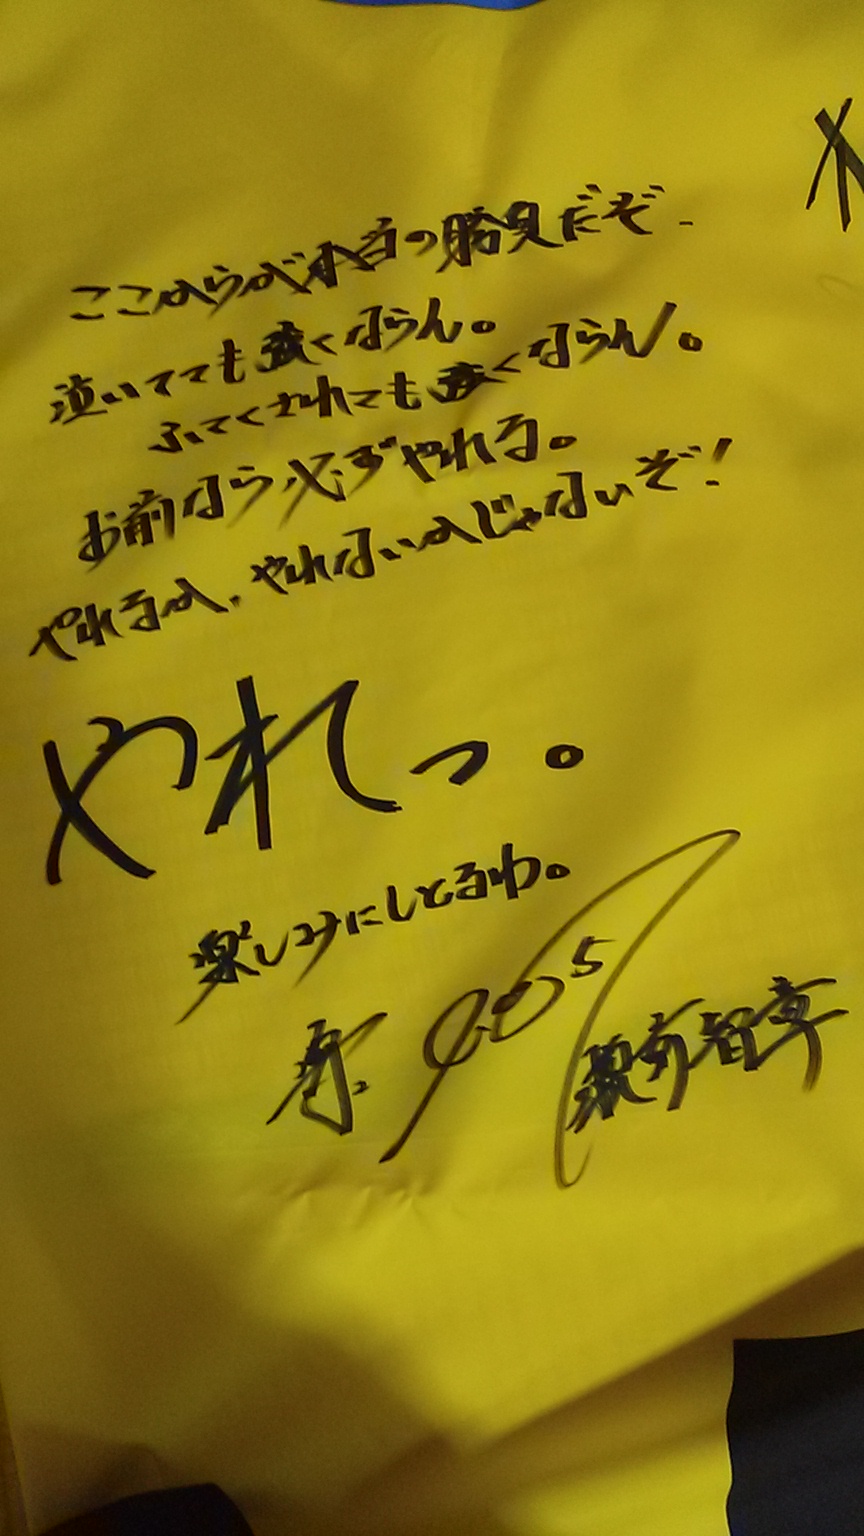 ここからが本当の勝負だぞ.
泣いてても強くならん。
ふてくされても強くならん。
お前なら必ずやれる。
やれるか、やれないかじゃないぞ!
やれっ。
楽しみにしとるわ。
5
智章